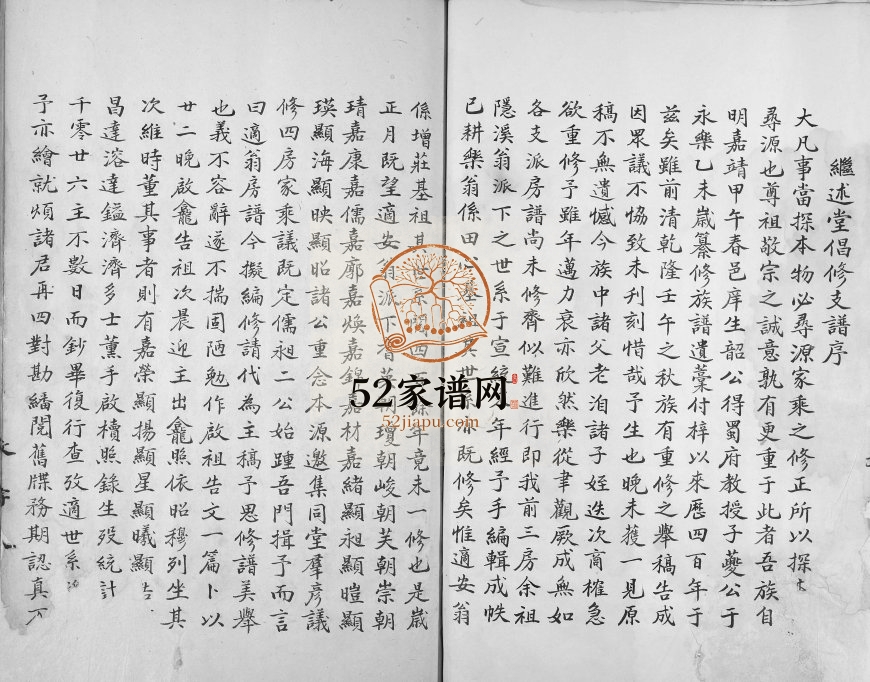 繼述堂倡修支譜序
大凡事當探本物必尋源家乘之修正所以探
尋源也尊祖敬宗之誠意孰有更重于此者吾族自
明嘉靖甲午春邑庠生韶公得蜀府教授子夔公于
永樂乙未嵗纂修族譜遺藁付梓以來歴四百年于
茲矣雖前清乾隆壬午之秋族有重修之舉稿告成
因眾議不恊致未刋刻惜哉予生也晚未獲一見原
稿不無遺憾今族中諸父老洎諸子姪迭次商榷急
欲重修予雖年邁力衰亦欣然樂從聿觀厥成無如
各支派房譜尚未修齊似難進行即我前三房余祖
隱溪翁派下之世系于宣統 年經予手編輯成帙
已耕樂翁係田 基祖其世系亦既修矣惟適安翁
係增莊基祖其世系 四 年竟未一修也是嵗
正月既望適安翁派下 朝瓊朝峻朝芙朝崇朝
琦嘉康嘉儒嘉廓嘉煥嘉錦嘉材嘉緒顯祖顯暟顯
瑛顯海顯映顯昭諸公重念本源邀集同堂羣彥議
修四房家乘議既定儒祖二公始踵吾門揖予而言
曰適翁房譜今擬編修請代為主稿予思修譜美舉
也義不容辭遂不揣固陋勉作啟祖告文一篇卜以
廿二晚啟龕告祖次晨迎主出龕照依昭穆列坐其
次維時董其事者則有嘉榮顯揚顯星顯曦顯
昌達溶達鎰濟濟多士薰手啟櫝照錄生歿統計
千零廿六主不數日而鈔畢復行查攷適世系
予亦繪就煩諸君再四對勘繙閱舊牒務期認真
52家谱网
52jiapu.com